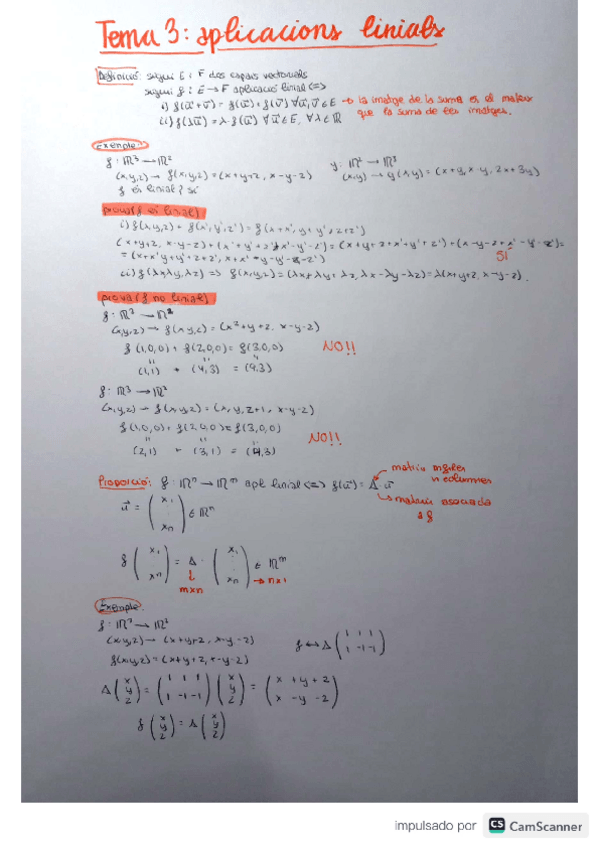 Tema 3: aplicacions linials
Definició: siguin E i F dos espais vectorials
sigui f: E → F aplicació linial <=>
i) f(u⃗+v⃗) = f(u⃗)+f(v⃗) ∀u⃗,v⃗ ∈ E → la imatge de la suma es el mateix
que la suma de les imatges.
ii) f(λu⃗) = λ·f(u⃗) ∀u⃗ ∈ E, ∀λ ∈ ℝ
Exemple:
f: ℝ³ → ℝ²
(x,y,z) → f(x,y,z) = (x+y+z, x-y-z)
g: ℝ² → ℝ³
(x,y) → g(x,y) = (x+y, x-y, 2x+3y)
f és linial? Sí
prova (f és linial)
i) f(x,y,z) + f(x',y',z') = f(x+x', y+y', z+z')
(x+y+z, x-y-z) + (x'+y'+z', x'-y'-z') = (x+y+z+x'+y'+z') + (x-y-z+x'-y'-z') =
SI
ii) f(λx,λy,λz) => f(x,y,z) = (λx+λy+λz, λx-λy-λz) = λ(x+y+z, x-y-z).
prova (f no linial)
(x,y,z) → f(x,y,z) = (x²+y+z, x-y-z)
f(1,0,0) + f(2,0,0) = f(3,0,0) NO!!
(1,1) + (4,3) = (9,3)
f: ℝ³ → ℝ²
(x,y,z) → f(x,y,z) = (x,y,z+1, x-y-z)
f(1,0,0) + f(2,0,0) = f(3,0,0) NO!!
(2,1) + (3,1) =
Proporció: f: ℝⁿ → ℝᵐ apl linial <=> f(u⃗) = A·u⃗
matriu m files
n columnes
matriu asociada
a f
u⃗ = (x₁ ⋮ xₙ) ∈ ℝⁿ
f (x₁ ⋮ xₙ) = A · (x₁ ⋮ xₙ) ∈ ℝᵐ
m×n
→ n×1
Exemple:
f: ℝ³ → ℝ²
(x,y,z) → (x+y+z, x-y-z)
f(x,y,z) = (x+y+z, x-y-z)
f ↔ A (1 1 1
1 -1 -1)
A (x y z) = (1 1 1 / 1 -1 -1) (x y z) = (x+y+z / x-y-z)
f (x y z) = A (x y z)
impulsado por CS CamScanner